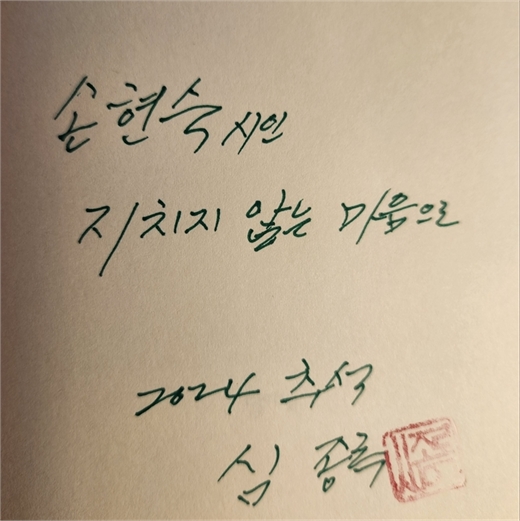 손현숙 시인
지치지 않는 마음으로
2024 추석
심종록